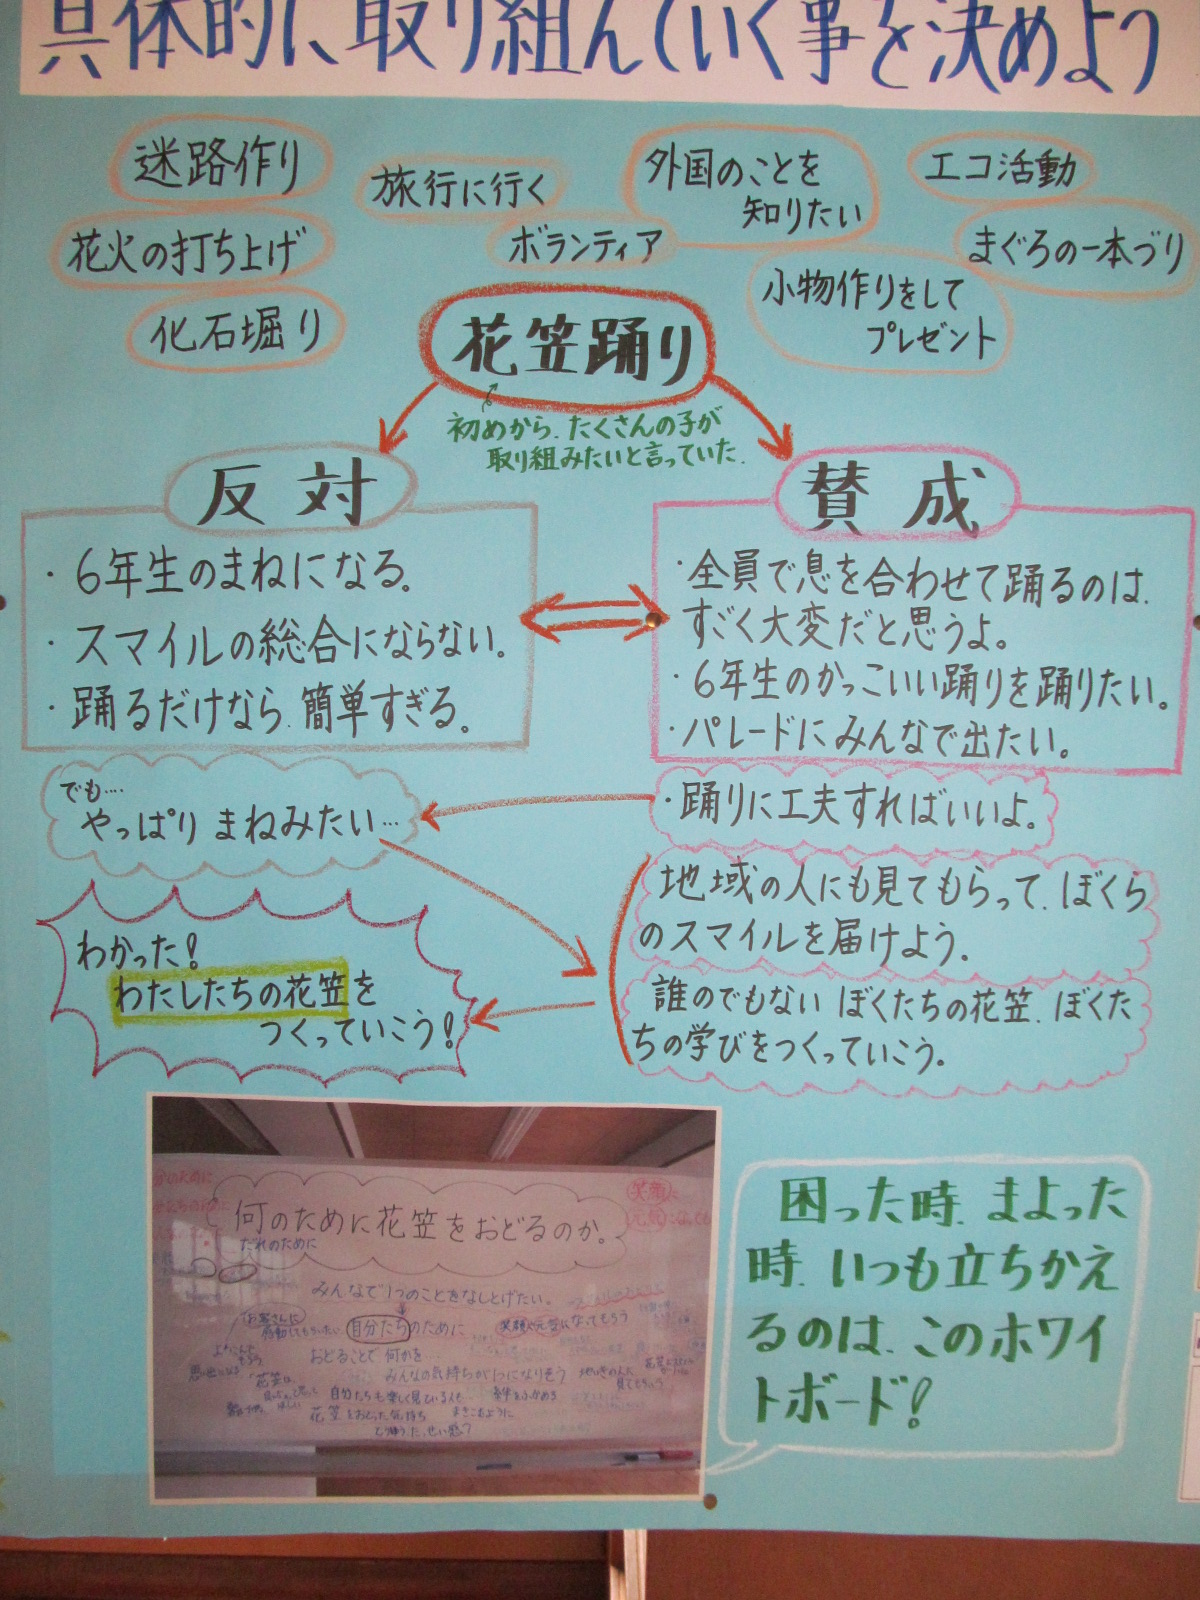 具体的に取り組んでいく事を決めよう
迷路作り
旅行に行く
外国のことを
知りたい
エコ活動
花火の打ち上げ
ボランティア
まぐろの一本づり
化石堀り
小物作りをして
プレゼント
花笠踊り
初めから、たくさんの子が
取り組みたいと言っていた。
反対
・6年生のまねになる。
・スマイルの総合にならない。
・踊るだけなら、簡単すぎる。
賛成
・全員で息を合わせて踊るのは、
すごく大変だと思うよ。
・6年生のかっこいい踊りを踊りたい。
・パレードにみんなで出たい。
でも…
やっぱりまねみたい…
・踊りに工夫すればいいよ。
地域の人にも見てもらって、ぼくら
のスマイルを届けよう。
誰のでもない ぼくたちの花笠、ぼくた
ちの学びをつくっていこう。
わかった!
わたしたちの花笠を
つくっていこう!
何のために花笠をおどるのか。
だれのために
みんなで1つのことをなしとげたい。
自分たちのために
笑顔や元気になってもらう
おどることで 何かを…
みんなの気持ちが1つになりそう
困った時、まよった
時、いつも立ちかえ
るのは、このホワイ
トボード!